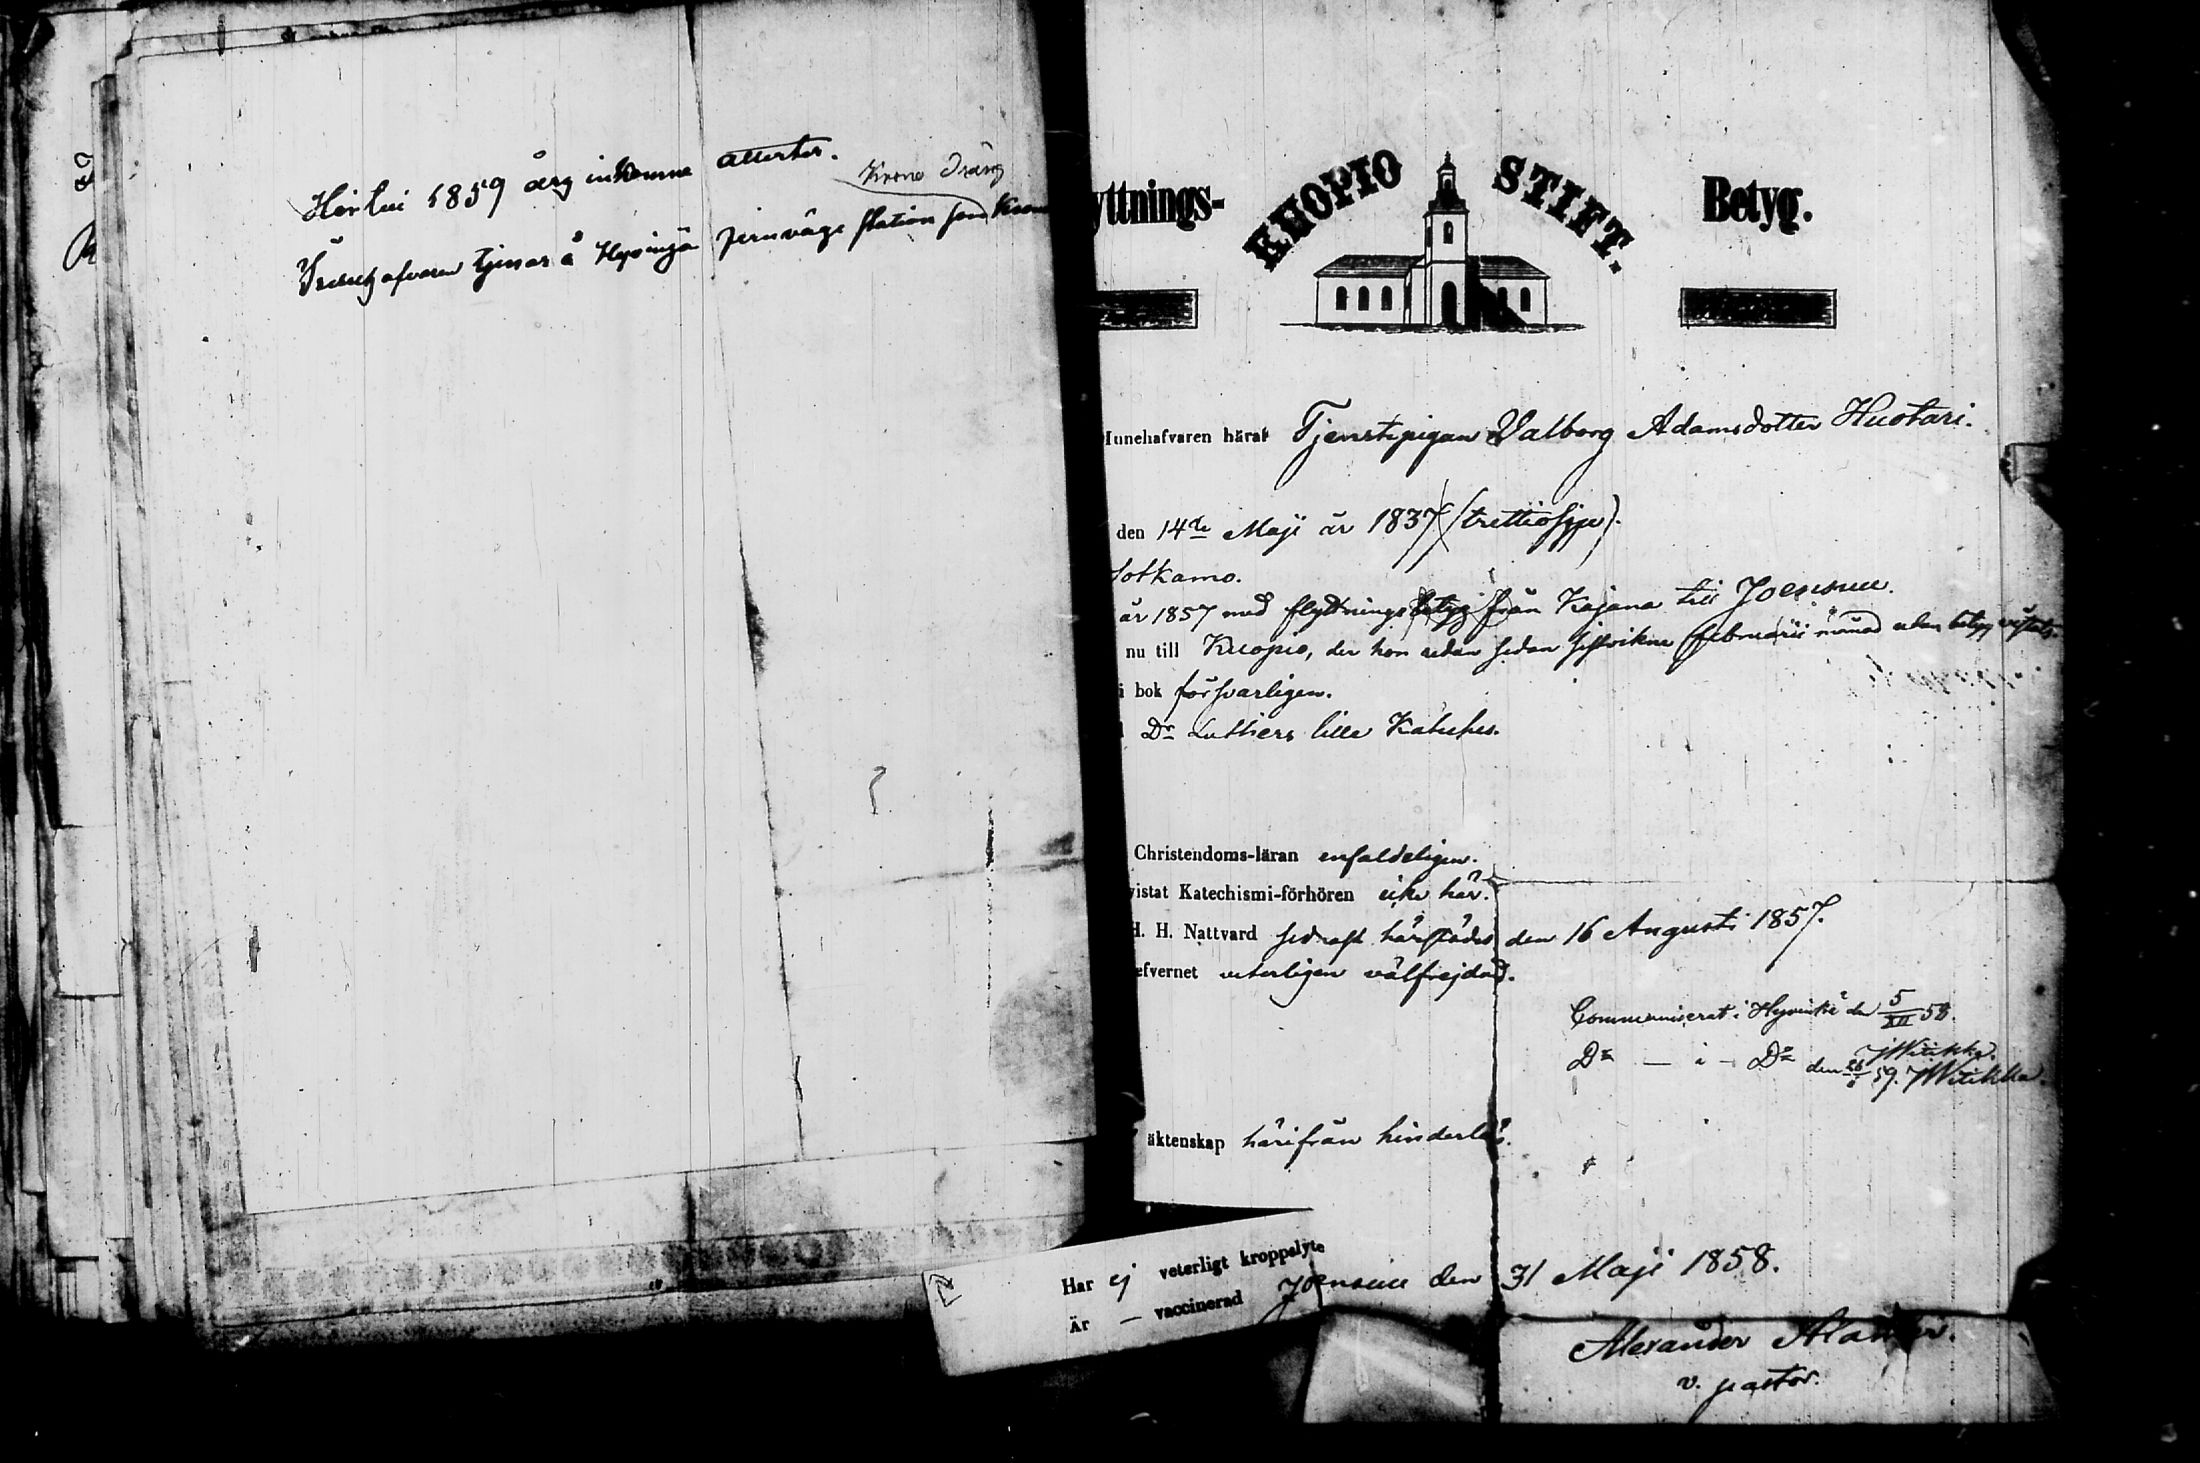 Hörlui 1859 årg inkomne attester.
Krono Dräng
Innehafvaren tjenar å Hyvinge jernvägs station som Krono
yttnings-
KUOPIO STIFT.
Betyg.
Innehafvaren häraf Tjenstepigan Valborg Adamsdotter Huotari.
den 14de Maji år 1837 (trettiosju).
Sotkamo.
år 1857 med flyttningsbetyg från Kajana till Joensuu.
nu till Kuopio, der hon redan sedan sistvikne februarii månad utan betyg vistats.
i bok försvarligen.
Dr Luthers lilla Kateches.
Christendoms-läran enfaldeligen.
vistat Katechismi-förhören icke här.
H. H. Nattvard sednast härstädes den 16 Augusti 1857.
efvernet veterligen välfrejdad.
Communicerat i Hyvinke den 5/XII 58.
JWitikka.
Do — i — Do den 26/6 59. JWitikka.
äktenskap härifrån hinderlös.
Har ej veterligt kroppslyte
Är — vaccinerad
Joensuu den 31 Maji 1858.
Alexander
v. pastor.